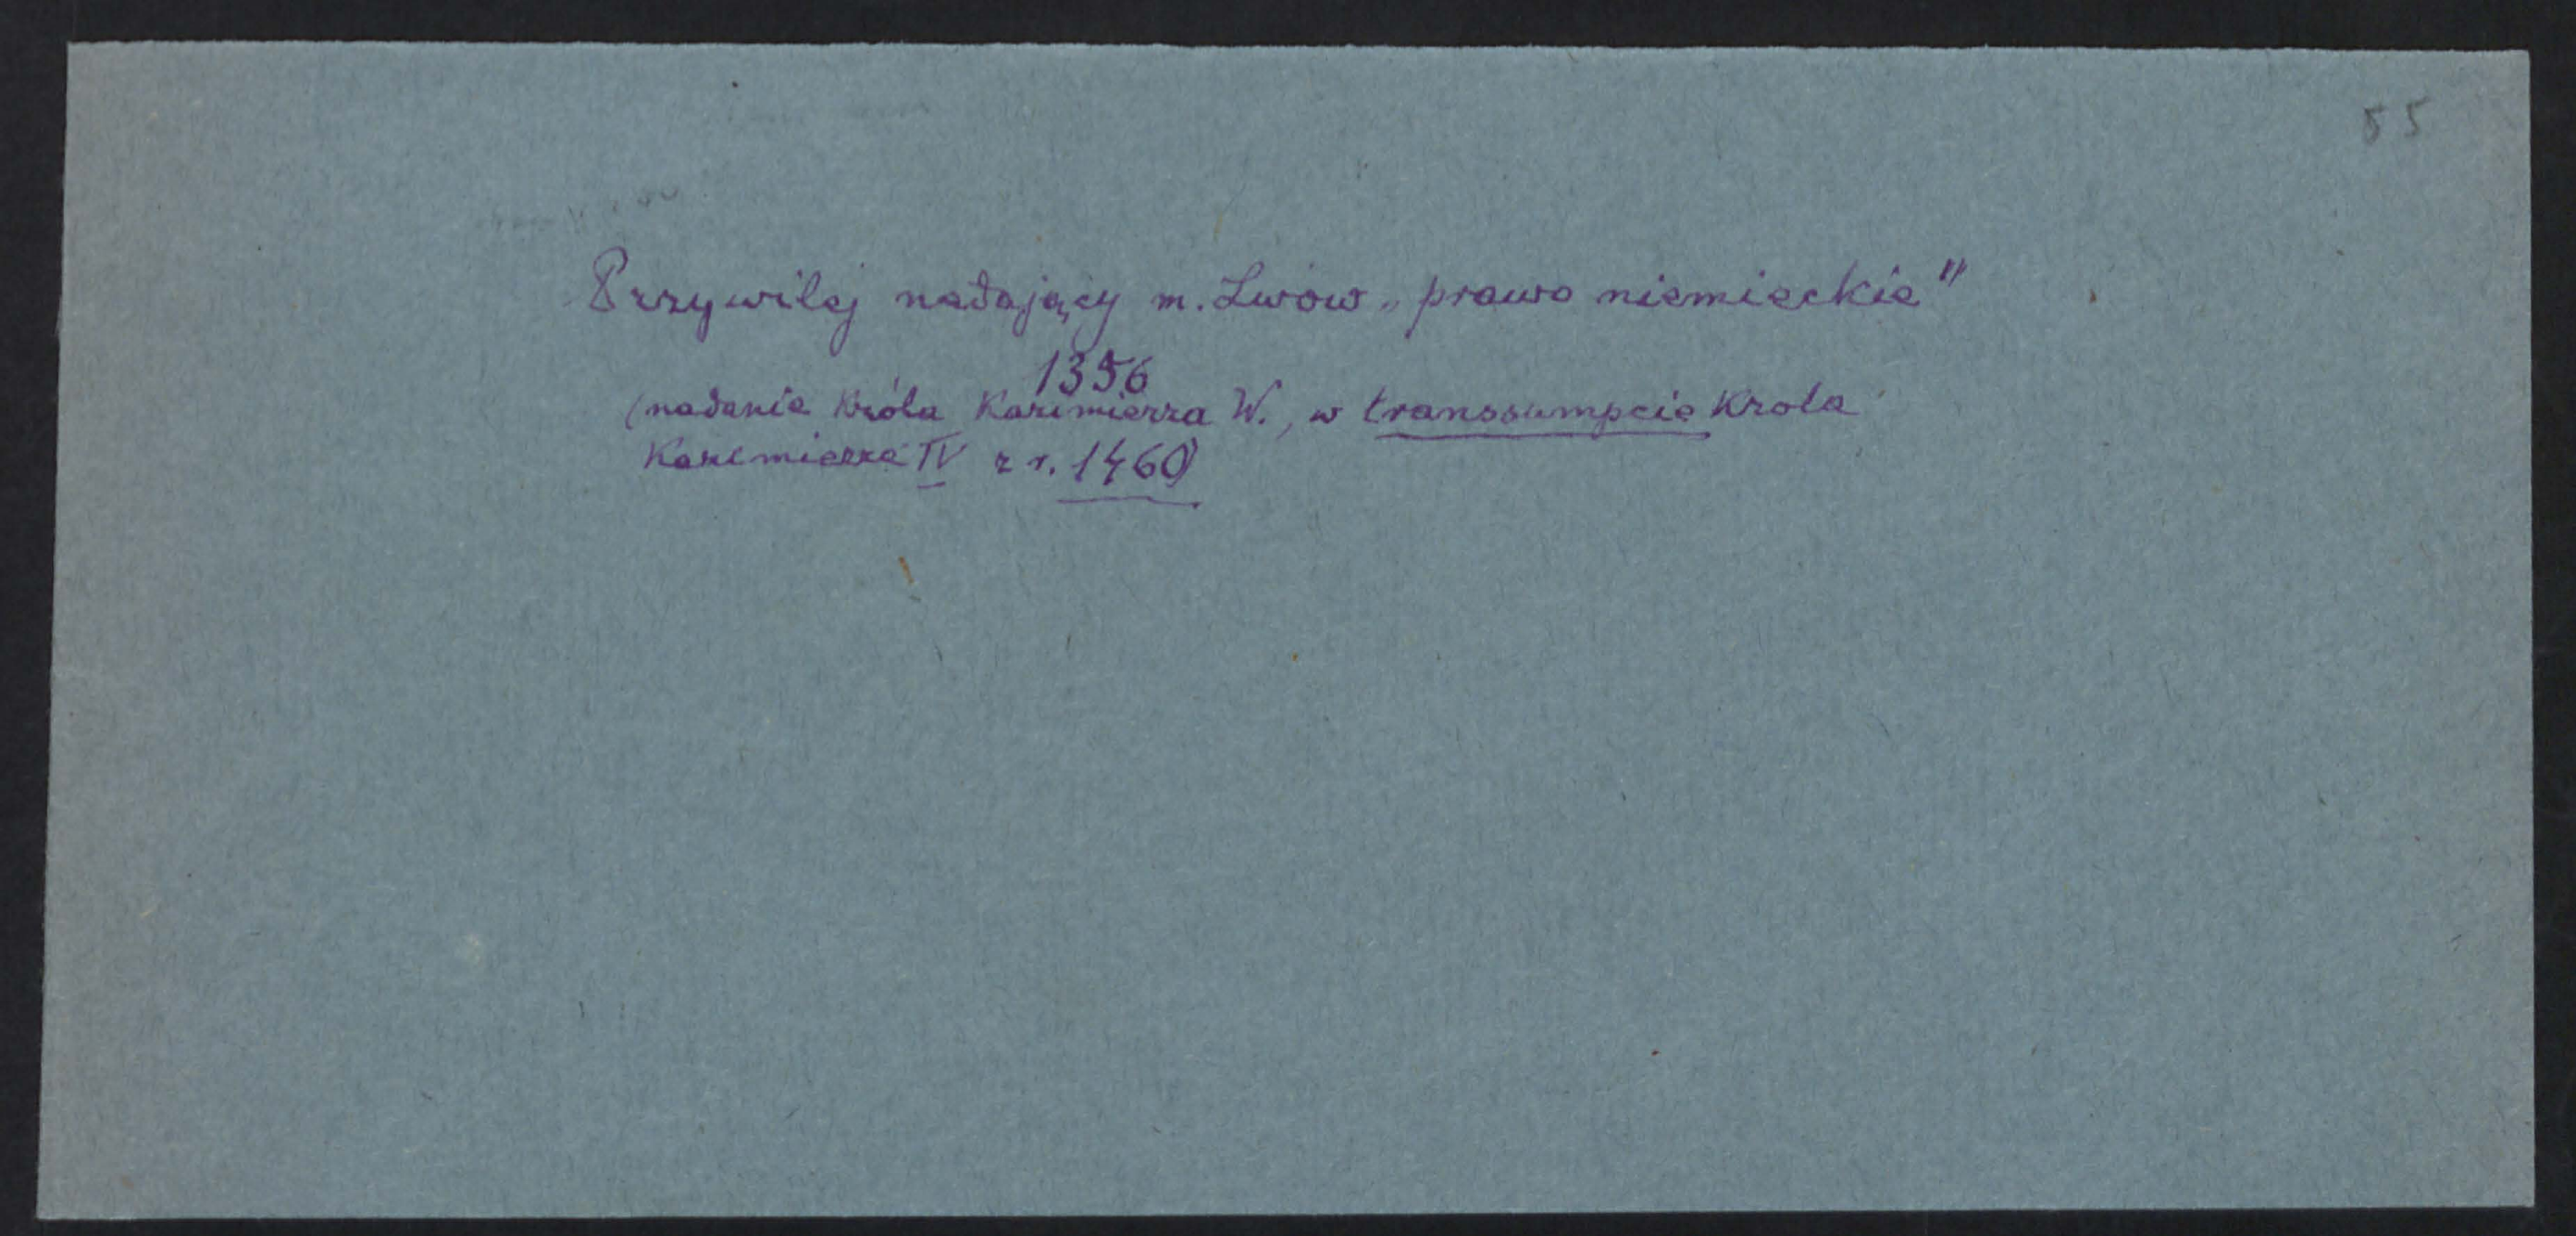 55
Przywilej nadający m. Lwow „prawo niemieckie"
1356
(nadanie króla Kazimierza W., w transsumpcie Krola
Kazimierza IV z r. 1460)